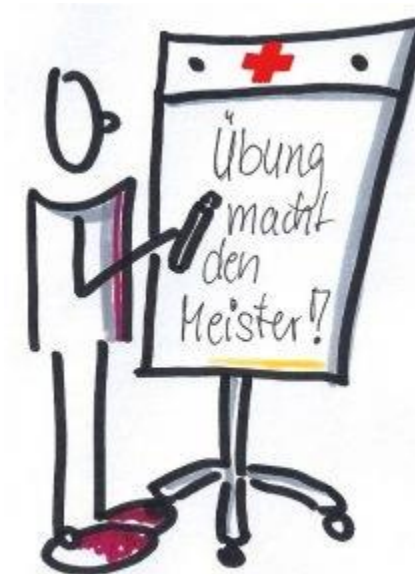 Übung
macht
den
Meister!?